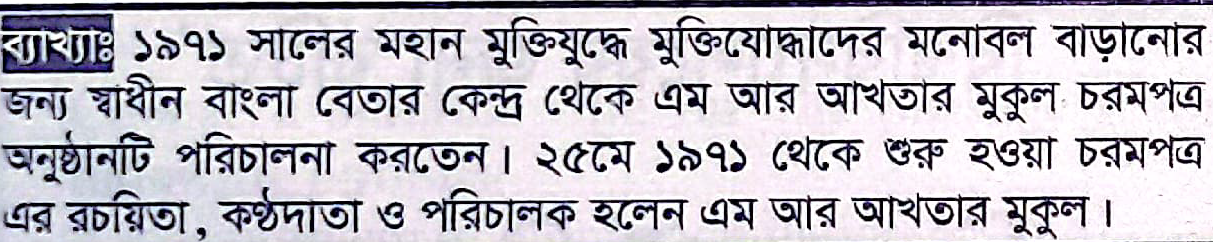 ব্যাখ্যাঃ ১৯৭১ সালের মহান মুক্তিযুদ্ধে মুক্তিযোদ্ধাদের মনোবল বাড়ানোর
জন্য স্বাধীন বাংলা বেতার কেন্দ্র থেকে এম আর আখতার মুকুল চরমপত্র
অনুষ্ঠানটি পরিচালনা করতেন। ২৫মে ১৯৭১ থেকে শুরু হওয়া চরমপত্র
এর রচয়িতা, কণ্ঠদাতা ও পরিচালক হলেন এম আর আখতার মুকুল।